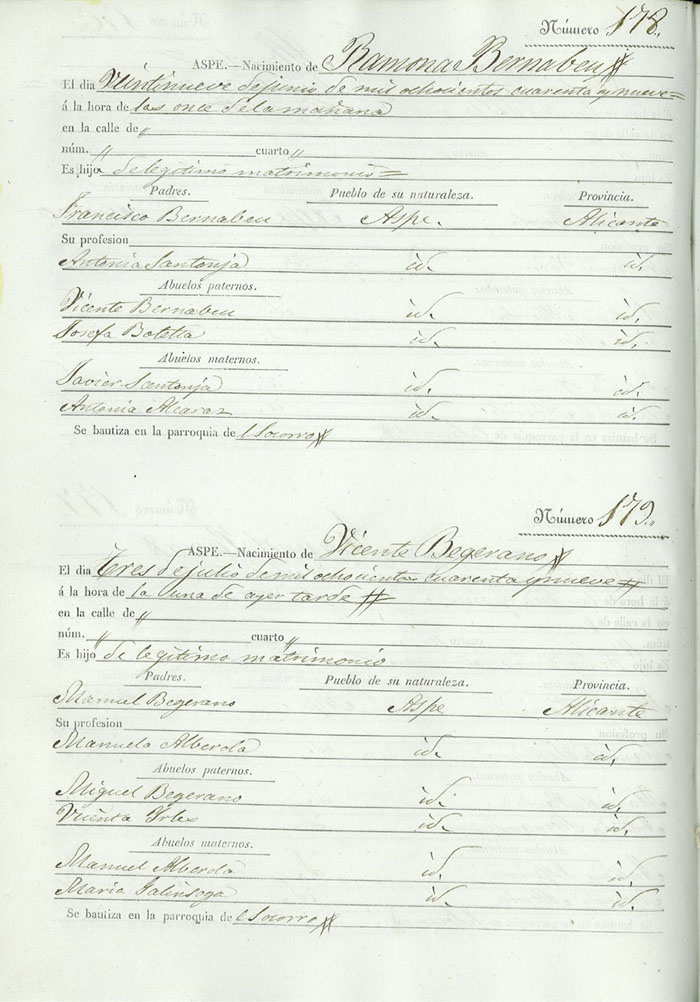 Número 178.
ASPE.—Nacimiento de Ramona Bernabeu
El dia Veintinueve de junio de mil ochocientos cuarenta y nueve=
á la hora de las once de la mañana
en la calle de "
núm. " cuarto "
Es hijo de legitimo matrimonio=
Padres. Pueblo de su naturaleza. Provincia.
Francisco Bernabeu Aspe. Alicante
Su profesion
Antonia Santonja id. id.
Abuelos paternos.
Vicente Bernabeu id. id.
Josefa Botella id. id.
Abuelos maternos.
Javier Santonja id. id.
Antonia Alcaraz id. id.
Se bautiza en la parroquia de l Socorro
Número 179.
ASPE.—Nacimiento de Vicente Begerano
El dia Tres de julio de mil ochocientos cuarenta y nueve=
á la hora de la una de ayer tarde
en la calle de "
núm. " cuarto "
Es hijo de legitimo matrimonio
Padres. Pueblo de su naturaleza. Provincia.
Manuel Begerano Aspe Alicante
Su profesion
Manuela Alberola id. id.
Abuelos paternos.
Miguel Begerano id. id.
Vicenta Yrles id. id.
Abuelos maternos.
Manuel Alberola id. id.
Maria Galinsoga id. id.
Se bautiza en la parroquia de l Socorro